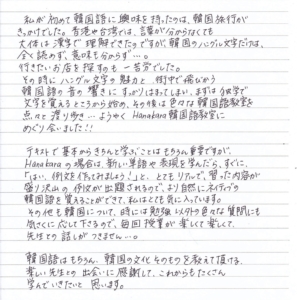 私が初めて韓国語に興味を持ったのは、韓国旅行が
きっかけでした。香港や台湾では、言葉が分からなくても
大体は漢字で理解できたのですが、韓国のハングル文字だけは、
全く読めず、意味も分からず…。
行きたいお店を探すのも一苦労でした。
その時にハングル文字の魅力と、街中で飛びかう
韓国語の音の響きにすっかりはまってしまい、まずは独学で
文字を覚えるところから始め、その後は色々な韓国語教室を
点々と渡り歩き…ようやくHanakara韓国語教室に
めぐり会いました!!
テキストで基本からきちんと学ぶことはもちろん重要ですが、
Hanakaraの場合は、新しい単語や表現を学んだら、すぐに、
「はい、例文を作ってみましょう!」と、とてもリアルで、習った内容が
盛り沢山の例文が出題されるので、より自然にネイティブの
韓国語を覚えることができて、私はとても気に入っています。
その他も韓国について、時には勉強以外の色々な質問にも
気さくに応じて下さるので、毎回授業が楽しくて楽しくて、
先生との話しがつきません…。
韓国語はもちろん、韓国の文化そのものを教えて頂ける、
楽しい先生との出会いに感謝して、これからもたくさん
学んでいきたいと思います。